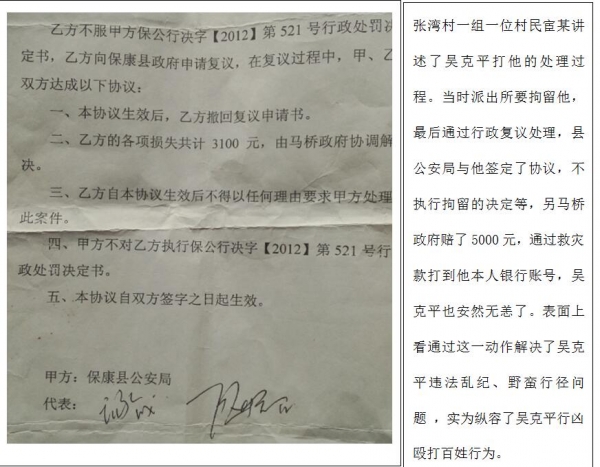 乙方不服甲方保公行决字【2012】第 521 号行政处罚决
定书，乙方向保康县政府申请复议，在复议过程中，甲、乙
双方达成以下协议：
一、本协议生效后，乙方撤回复议申请书。
二、乙方的各项损失共计 3100 元，由马桥政府协调解
决。
三、乙方自本协议生效后不得以任何理由要求甲方处理
此案件。
四、甲方不对乙方执行保公行决字【2012】第 521 号行
政处罚决定书。
五、本协议自双方签字之日起生效。
甲方：保康县公安局
代表：
张湾村一组一位村民宦某讲
述了吴克平打他的处理过
程。当时派出所要拘留他，
最后通过行政复议处理，县
公安局与他签定了协议，不
执行拘留的决定等，另马桥
政府赔了 5000 元，通过救灾
款打到他本人银行账号，吴
克平也安然无恙了。表面上
看通过这一动作解决了吴克
平违法乱纪、野蛮行径问
题 ，实为纵容了吴克平行凶
殴打百姓行为。